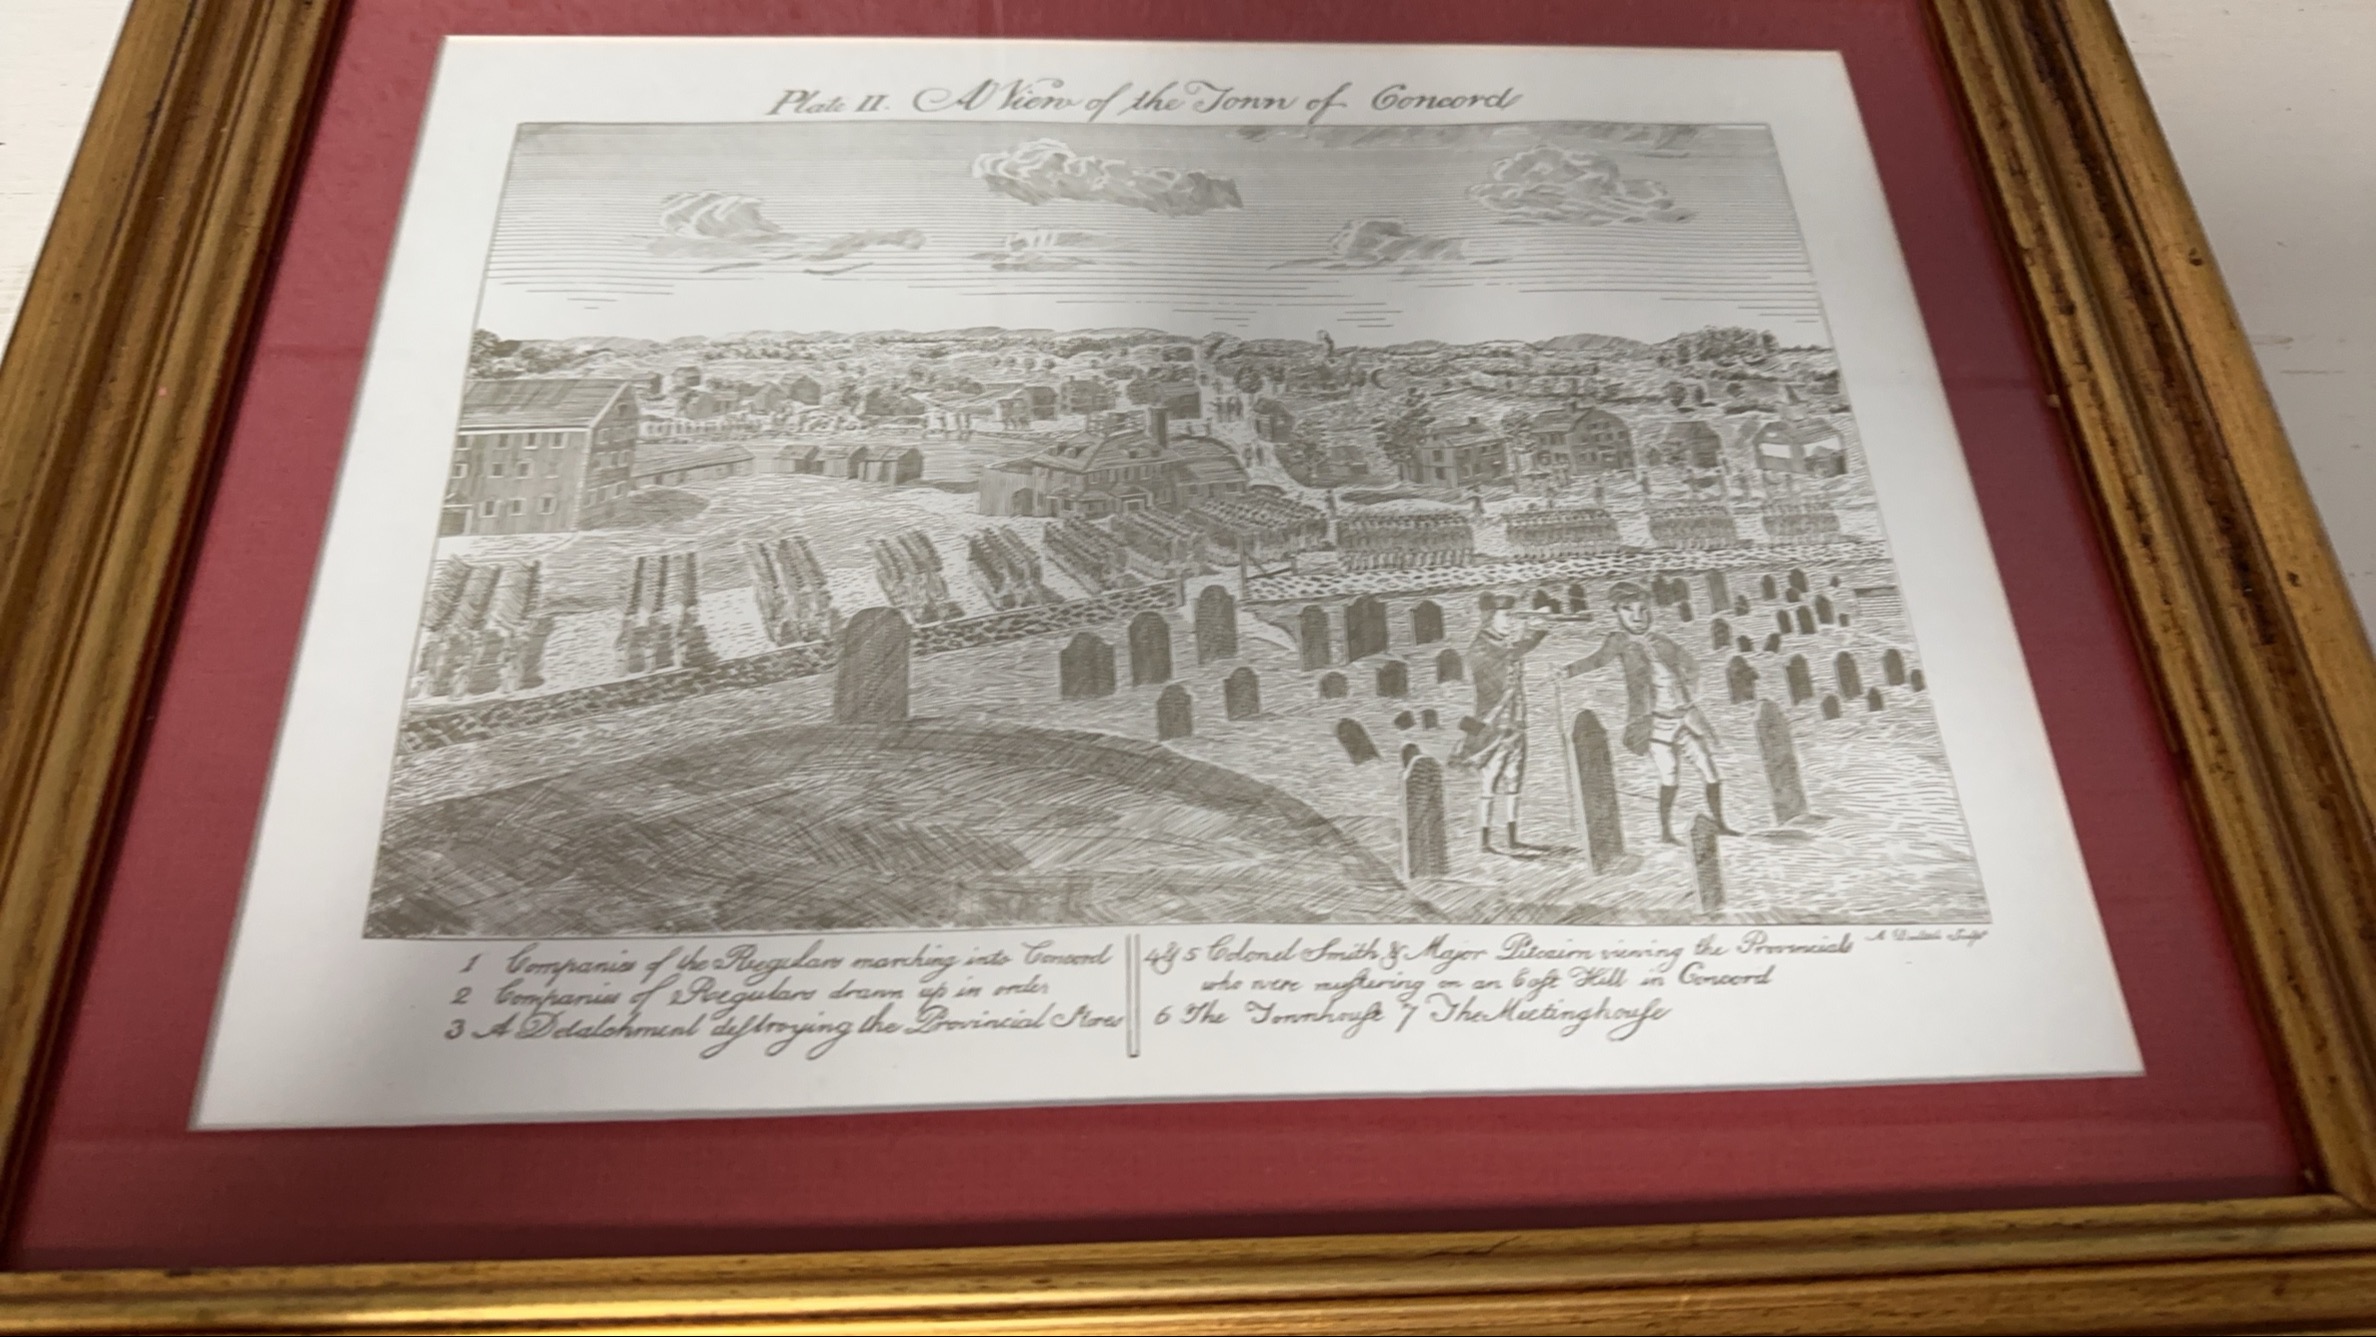 Plate II. A View of the Town of Concord
1 Companies of the Regulars marching into Concord
2 Companies of Regulars drawn up in order
3 A Detatchment deſtroying the Provincial Stores
4 & 5 Colonel Smith & Major Pitcairn viewing the Provincials
who were muſtering on an Eaſt Hill in Concord
6 The Townhouſe 7 The Meetinghouſe
A. Doolittle Sculpt